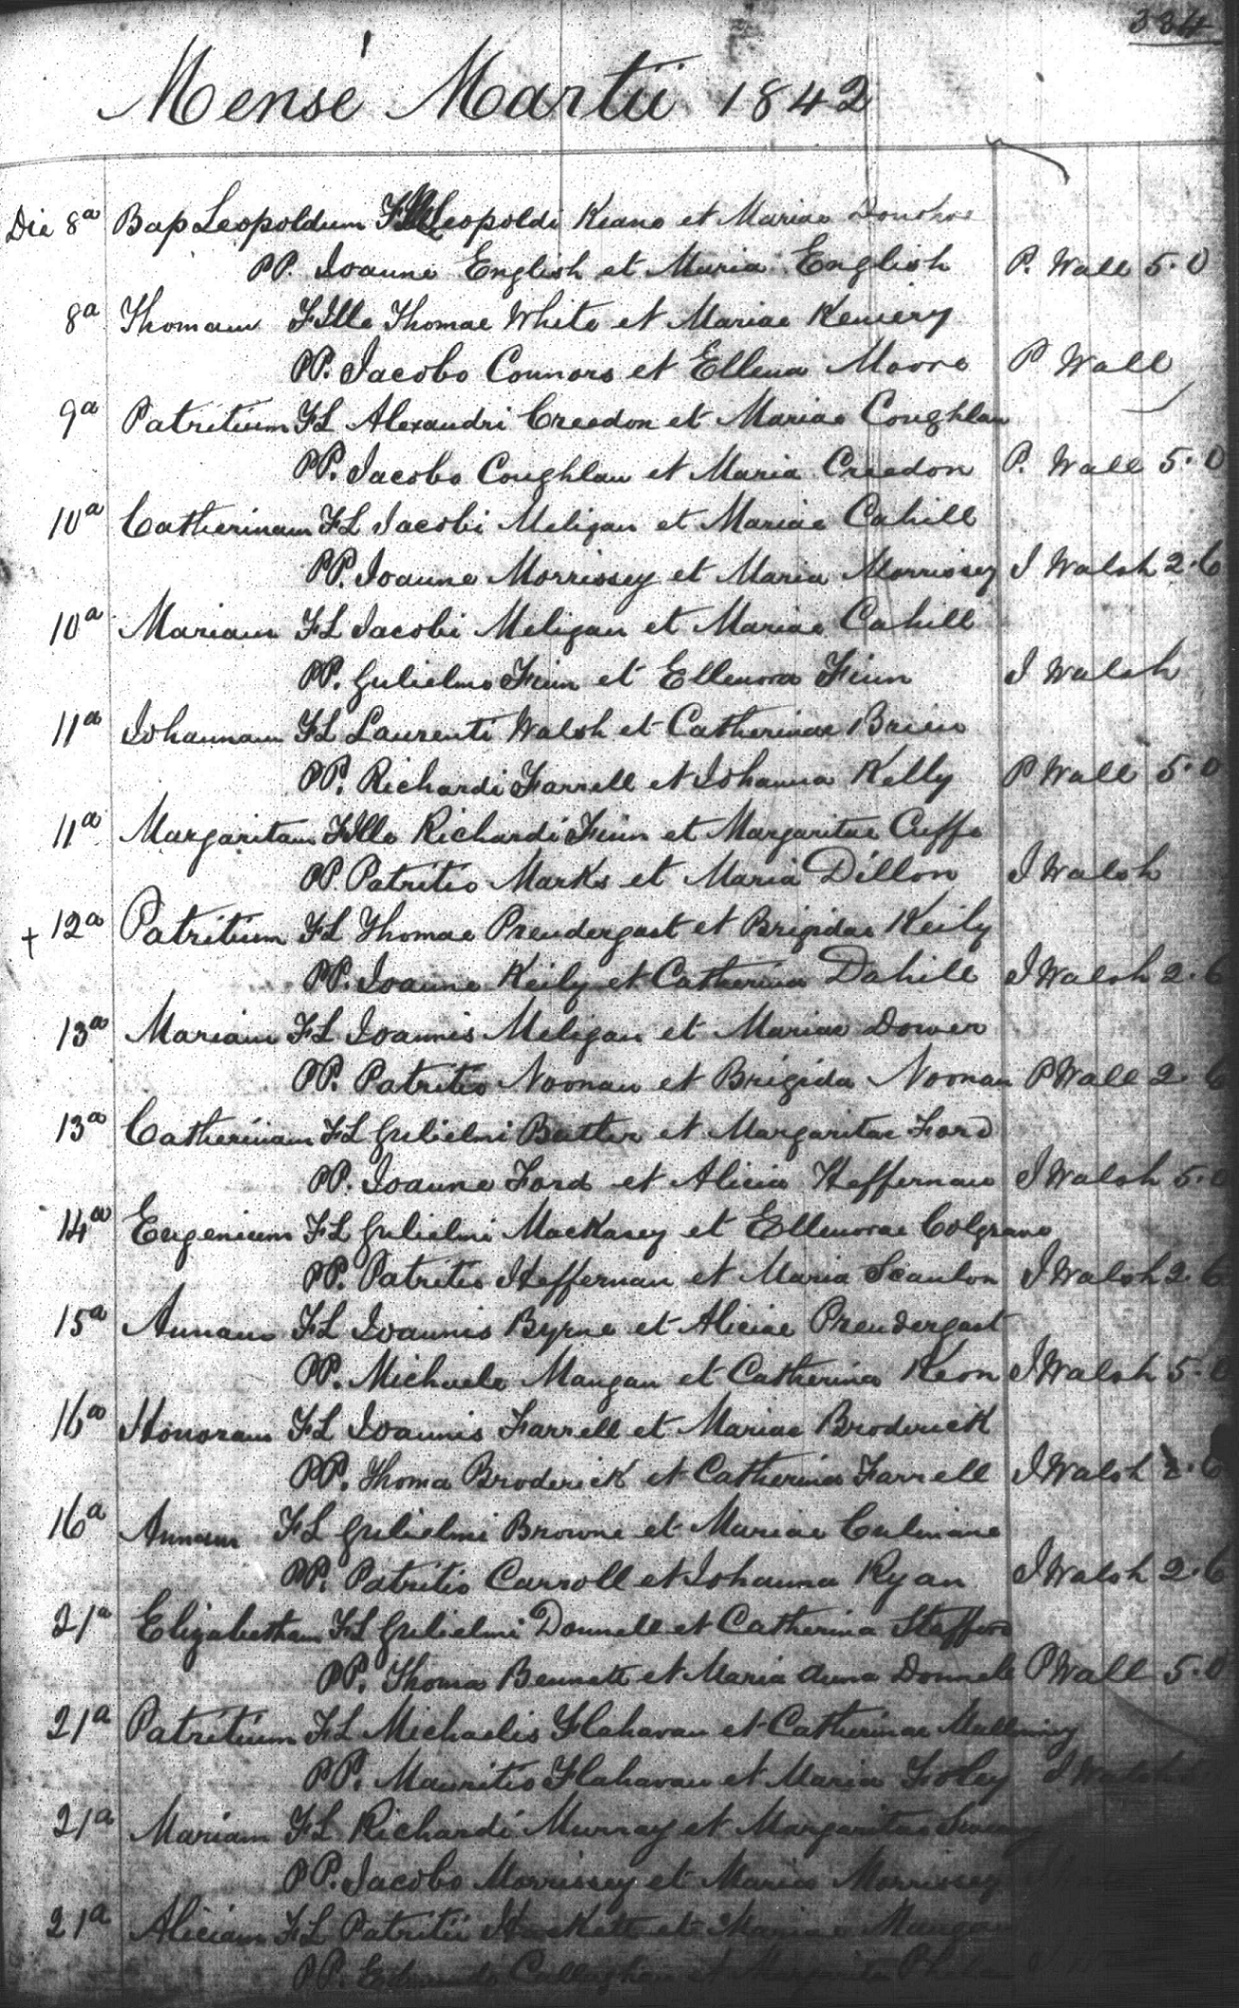 334
Mensé Martii 1842
Die 8a Bap Leopoldum Leopoldi Keane et Mariae Donohoe
PP. Joanne English et Maria English P. Wall 5.0
8a Thomam FIlle Thomae White et Mariae Keniery
PP. Jacobo Connors et Ellena Moore P Wall
9a Patritium FL Alexandri Creedon et Mariae Coughlan
PP. Jacobo Coughlan et Maria Creedon P. Wall 5.0
10a Catherinam FL Jacobi Meligan et Mariae Cahill
PP. Joanne Morrissey et Maria Morrissey J Walsh 2.6
10a Mariam FL Jacobi Meligan et Mariae Cahill
PP. Gulielmo Finn et Ellenora Finn J Walsh
11a Johannam FL Laurenti Walsh et Catherinae Brien
PP. Richardi Farrell et Johanna Kelly P Wall 5.0
11a Margaritam FIlle Richardi Finn et Margaritae Cuffe
PP Patritio Marks et Maria Dillon J Walsh
+ 12a Patritium FL Thomae Prendergast et Brigidae Keily
PP. Joanne Keily et Catherina Dahill J Walsh 2.6
13a Mariam FL Joannis Meligan et Mariae Dower
PP. Patritio Noonan et Brigida Noonan P Wall 2.6
13a Catherinam FL Gulielmi Butler et Margaritae Ford
PP. Joanne Ford et Alicia Heffernan J Walsh 5.0
14a Eugenium FL Gulielmi Mackasey et Ellenorae Colgrane
PP. Patritio Heffernan et Maria Scanlon J Walsh 2.6
15a Annam FL Joannis Byrne et Aliciae Prendergast
PP. Michaele Mangan et Catherina Keon J Walsh 5.0
16a Honoram FL Joannis Farrell et Mariae Broderick
PP. Thoma Broderick et Catherina Farrell J Walsh 2.6
16a Annam FL Gulielmi Browne et Mariae Culinane
PP. Patritio Carroll et Johanna Ryan J Walsh 2.6
21a Elizabetham FL Gulielmi Donnell et Catherina Stafford
PP. Thoma Bennett et Maria Anna Donnell P Wall 5.0
21a Patritium FL Michaelis Flahavan et Catherinae
PP. Mauritio Flahavan et Maria Foley J Walsh
21a Mariam FL Richardi Murray et Margaritae
PP. Jacobo Morrissey et Maria Morrissey
21a Aliciam FL Patritii Hackett et Mariae Mangan
PP. Edmundo Callaghan et Margarita